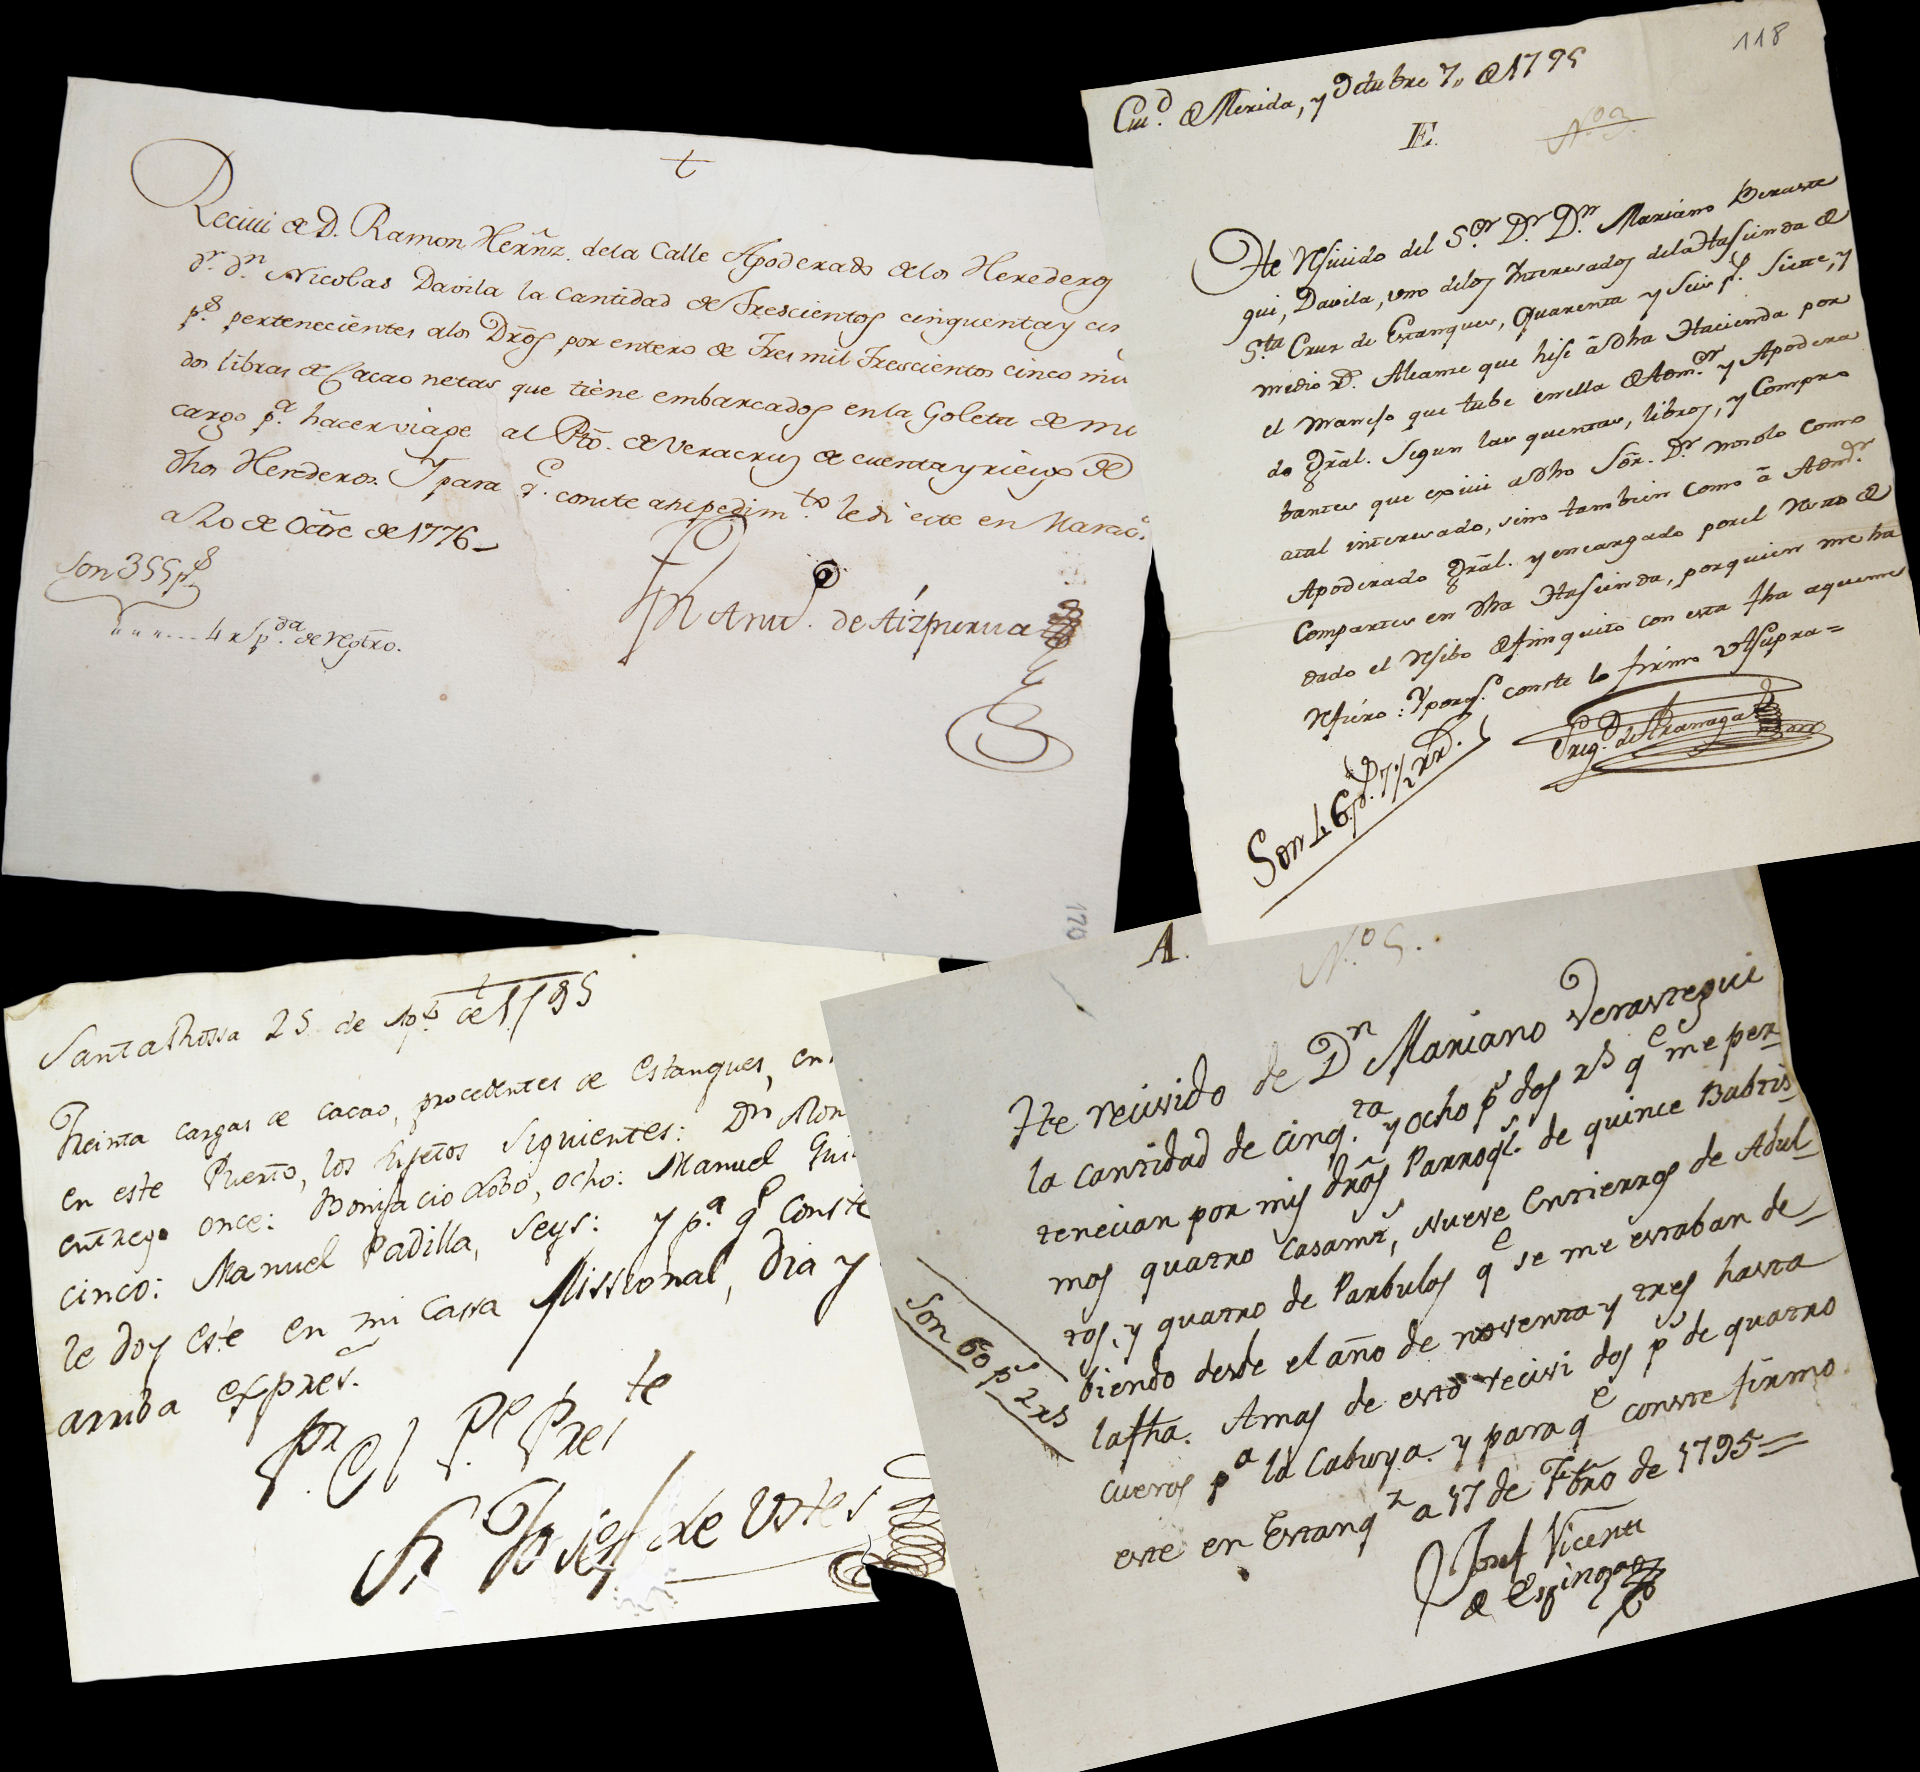 †
Recivi de D. Ramon Herñz. de la Calle Apoderado de los Herederos
Dr. Dn. Nicolas Davila la Cantidad de Trescientos cinquenta y cin
ps. pertenecientes a los Dros. por entero de Tres mil Trescientos cinco mil
dos libras de Cacao netas que tiene embarcados en la Goleta de mi
cargo pa. hacer viage al Pto. de Veracruz de cuenta y riezgo de
dhos Herederos. Y para qe. conste a su pedimto. le di este en Marac.o
a 20 de Octre de 1776
Son 355 ps
" " " .... 4 rs pda. de regtro.
Manl. de Aizpurua
170
118
Ciud. de Merida, y Octubre 7,, de 1795
E.
No. 3.
He Resivido del Sor. Dr. Dn. Mariano Beraste
gui, Davila, uno delos Interesados dela Hasienda de
Sta. Cruz de Estanques, Quarenta y Seis ps. Siette, y
medio rs. Alcanse que hise â dha Hacienda por
el Manejo que tube en ella de Admor. y Apodera
do Gral. Segun las quentas, libros, y Compro
bantes que exivi a dho Sõr. Dr. no solo Como
atal interesado, sino tambien Como â Admdr.
Apoderado Gral. y encargado por el Resto de
Compartes en dha Hasienda, por quien me ha
dado el Resibo de finiquito con esta fha aque me
Refiero: Y porqe. conste lo firmo Ut Supra=
Grego. de Aranaga
Son 46 ps. 7 1/2 rs.
Santa Rossa 25 de de 1795
Treinta cargas de cacao, procedentes de Estanques, en
en este Puerto, los sujetos siguientes: Dn Mon
entrego once: Bonifacio Lobo, ocho: Manuel Gui
cinco: Manuel Padilla, Seys: y pa. qe Conste
le doy este en mi Cassa Missional, Dia y
arriba expres.
Fr El Pe. Preste
Fr. Josef de Ustes
A.
No. 5.
He recivido de Dn Mariano Verastegui
la cantidad de cinq.ta y ocho ps dos rs qe me per-
tenecian por mis drõs Parroqs. de quince Babtis
mos quatro Casamts, Nueve Entierros de Adul-
tos, y quatro de Parbulos qe se me estaban de-
biendo desde el año de noventa y tres hasta
la fha. Amas de esto recivi dos ps de quatro
cueros pa la Cabuya. y para qe conste firmo
este en Estanqz a 17 de Fbro de 1795=
Josef Vicente
de Espinoza
Son 60 ps 2 rs